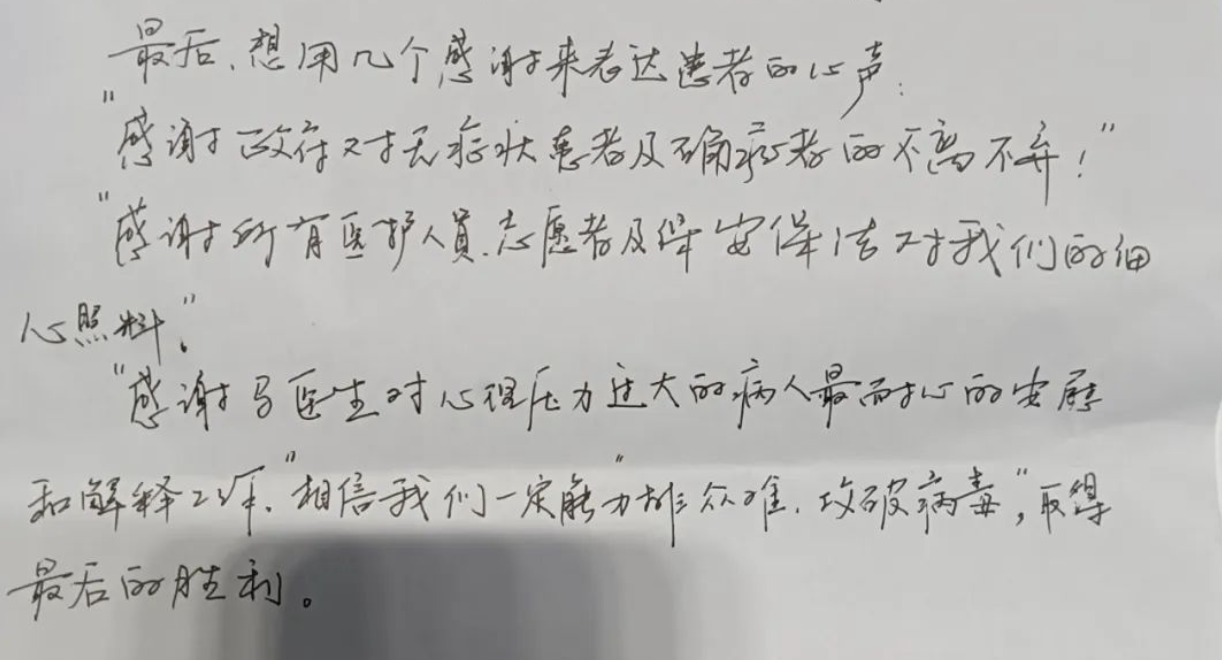 最后、想用几个感谢来表达患者的心声:
"感谢政府对无症状患者及确病者的不离不弃!"
"感谢所有医护人员、志愿者及保安保洁对我们的细
心照料。"
"感谢马医生对心理压力过大的病人最耐心的安慰
和解释工作. "相信我们一定能"力排众难、攻破病毒",取得
最后的胜利。